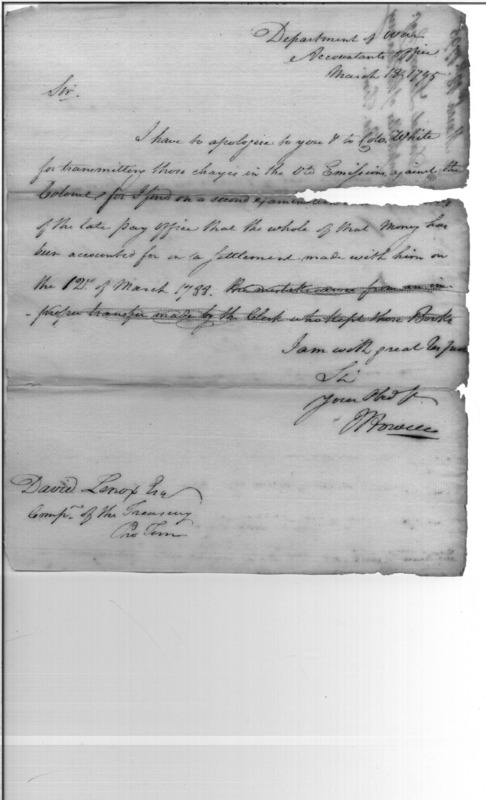 Department of War
Accountants office
March 13th 1795
Sir.
I have to apologise to you & to Colo. White
for transmitting those charges in the Old Emissions against the
Colonel, for I find on a second examin
of the late Pay office that the whole of that Money has
been accounted for in a settlement made with him on
the 12th of March 1783. the mistake arose from an im-
-proper transfer made by the Clerk who kept those Books
I am with great
Sir
your Obdt
JHowell
David Lenox Esq
Compr. of the Treasury
Pro Tem